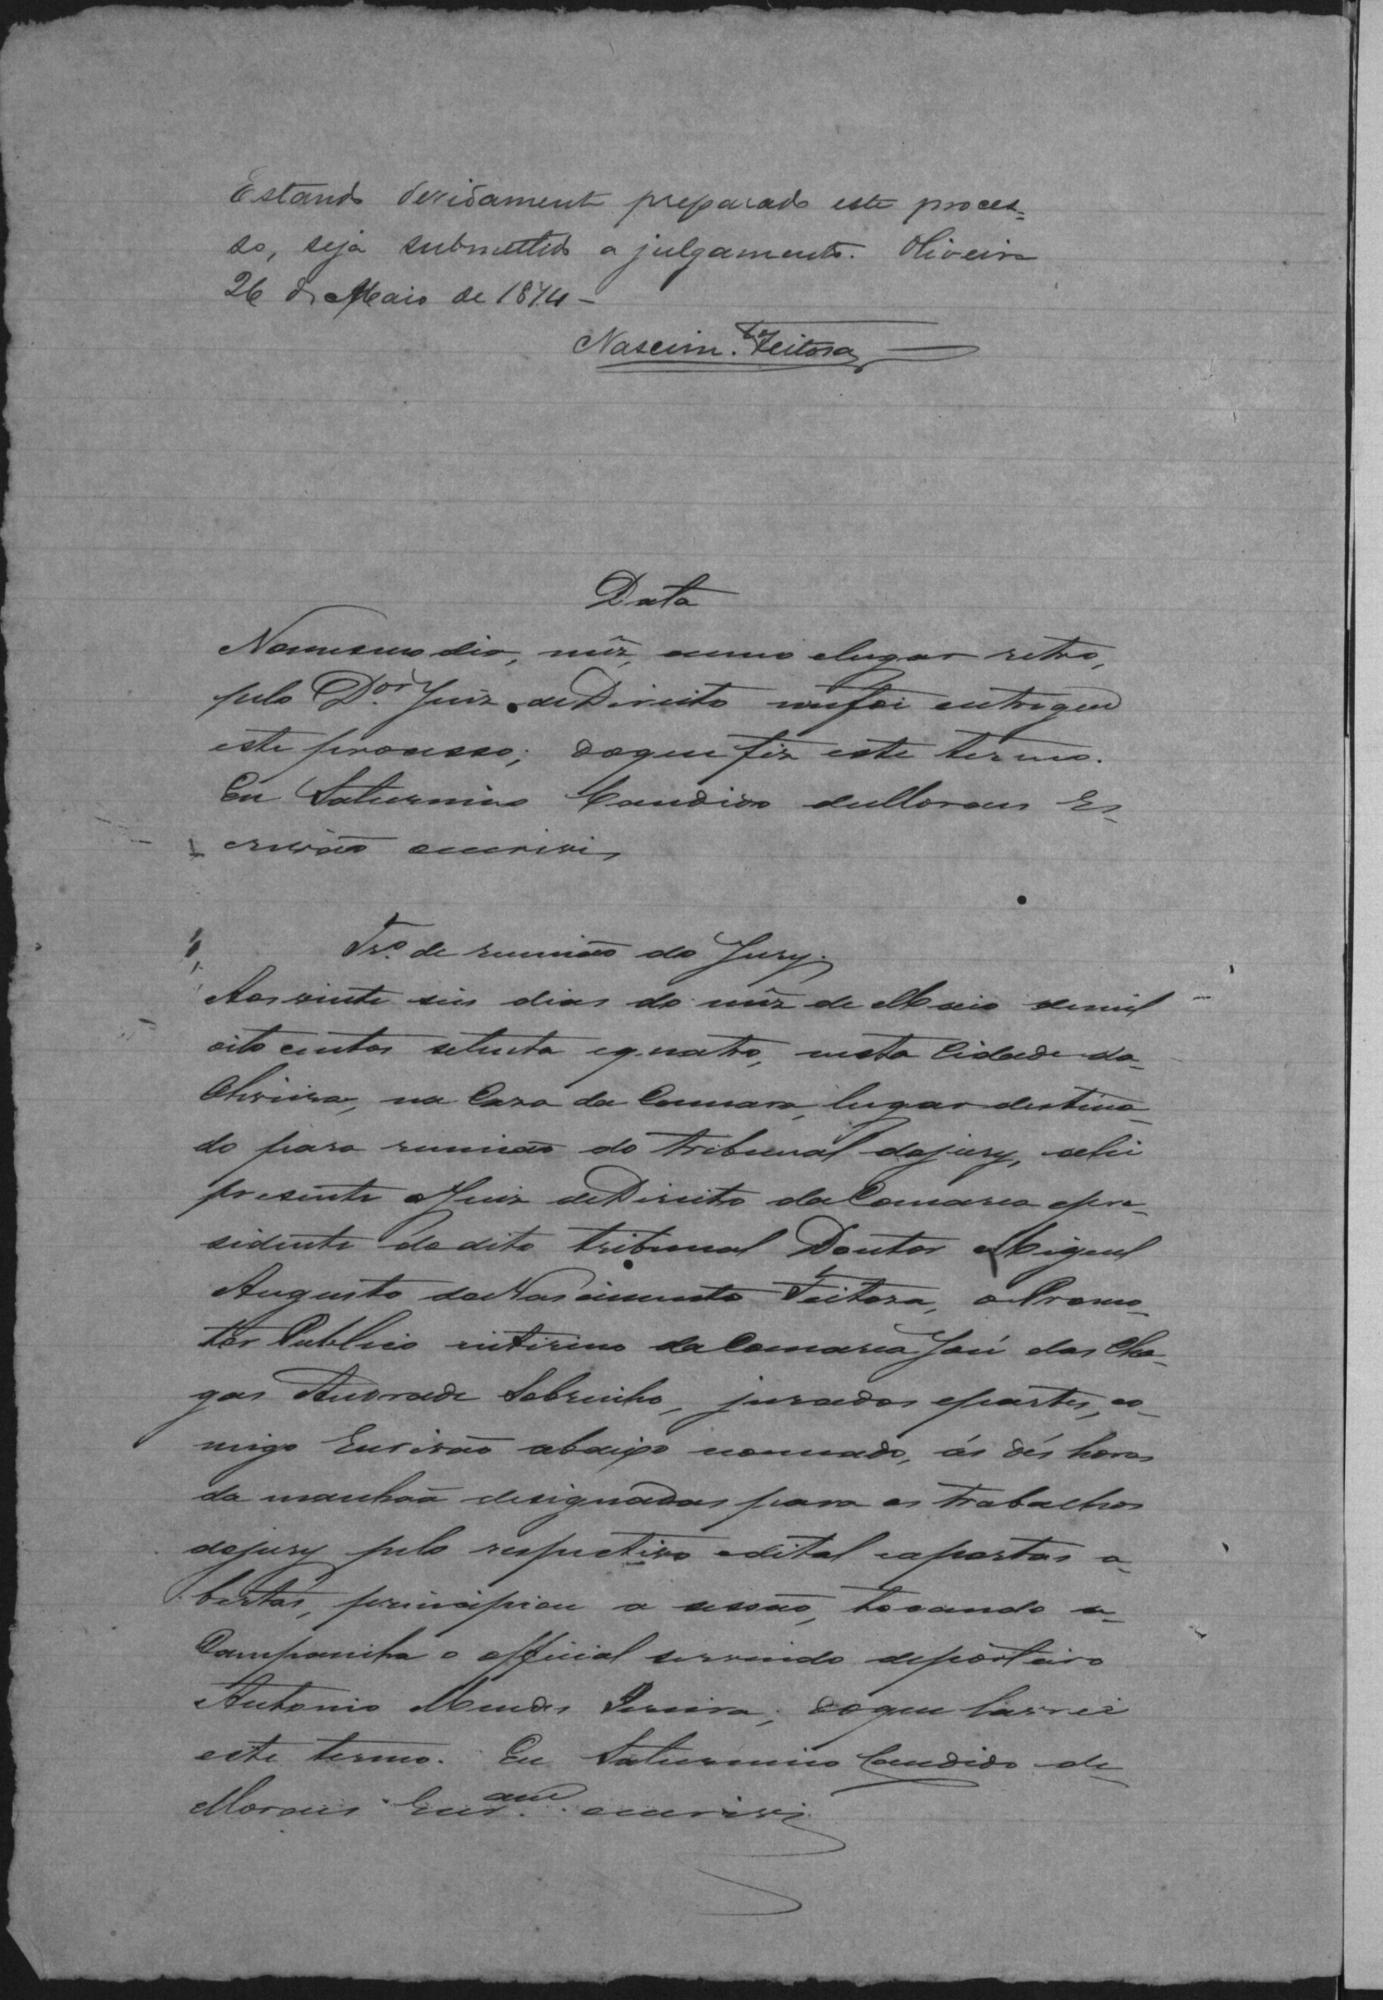 Estando devidamente preparado este proces=
so, seja submettido a julgamento. Oliveira
26 de Maio de 1874 –
Nascim.to Feitosa
Data
No mesmo dia, mêz, anno e lugar retro,
pelo D.or Juiz de Direito me foi entregue
este processo; do que fiz este termo.
Eu Saturnino Candido de Moraes Es-
crivão escrivi
Tr.o de reunião do Jury.
Aos vinte seis dias do mêz de Maio de mil
oito centos setenta e quatro, nesta Cidade da
Oliveira, na Caza da Camara, lugar destina-
do para reunião do tribunal do jury, ahi
presente o Juiz de Direito da Comarca e pre-
sidente do dito tribunal Doutor Miguel
Augusto do Nascimento Feitosa, o Promo-
tor Publico interino da Comarca José das Cha-
gas Andrade Sobrinho, jurados e partes, co-
migo Escrivão abaixo nomeado, ás dés horas
da manhaã designadas para os trabalhos
do jury pelo respectivo edital e a portas a-
bertas, principiou a sessão, tocando a
Campainha o official servindo de porteiro
Antonio Mendes Pereira; do que lavrei
este termo. Eu Saturnino Candido de
Moraes Escr.am escrivi